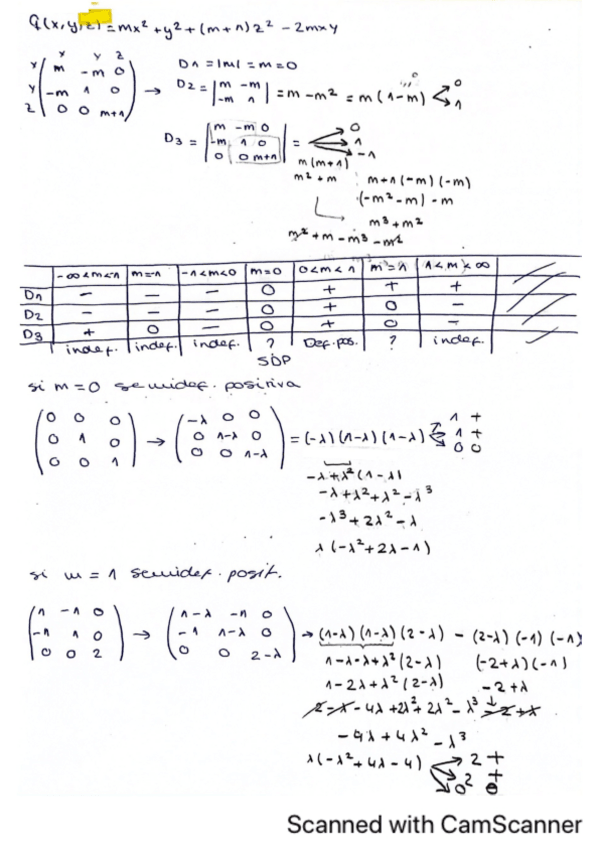 Q(x,y,z) = mx² + y² + (m+1)z² - 2mxy
x y z
x ( m -m 0 ) D1 = |m| = m = 0
y ( -m 1 0 ) → D2 = | m -m ; -m 1 | = m - m² = m(1-m) < 0 1
z ( 0 0 m+1 )
D3 = | m -m 0 ; -m 1 0 ; 0 0 m+1 | = 0 1 -1
m(m+1) m+1(-m)(-m)
m² + m (-m² - m) - m
m³ + m²
m² + m - m³ - m²
-∞<m<1 | m=-1 | -1<m<0 | m=0 | 0<m<1 | m=1 | 1<m<∞
D1 | - | - | - | 0 | + | + | +
D2 | - | - | - | 0 | + | 0 | -
D3 | + | 0 | - | 0 | + | 0 | -
indef. | indef. | indef. | ? | Def. pos. | ? | indef.
SDP
si m = 0 semidef. positiva
( 0 0 0 ) ( -λ 0 0 ) 1 +
( 0 1 0 ) → ( 0 1-λ 0 ) = (-λ)(1-λ)(1-λ) 1 +
( 0 0 1 ) ( 0 0 1-λ ) 0 0
-λ + λ²(1-λ)
-λ + λ² + λ² - λ³
-λ³ + 2λ² - λ
λ(-λ² + 2λ - 1)
si m = 1 semidef. posit.
( 1 -1 0 ) ( 1-λ -1 0 ) → (1-λ)(1-λ)(2-λ) - (2-λ)(-1)(-1)
( -1 1 0 ) → ( -1 1-λ 0 ) 1-λ-λ+λ²(2-λ) (-2+λ)(-1)
( 0 0 2 ) ( 0 0 2-λ ) 1-2λ+λ²(2-λ) -2+λ
2 - λ - 4λ + 2λ² + 2λ² - λ³ - 2 + λ
-4λ + 4λ² - λ³
λ(-λ² + 4λ - 4) 2 +
2 +
0
Scanned with CamScanner